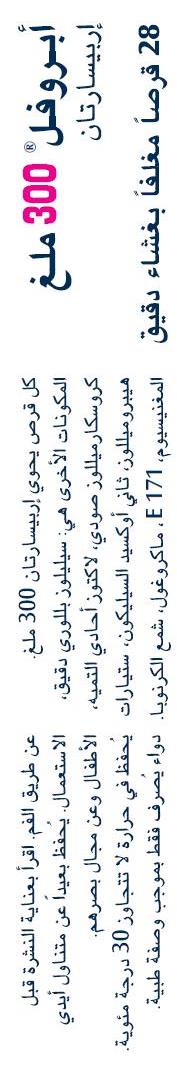 أبروفل® 300 ملغ
إربيسارتان
28 قرصاً مغلفاً بغشاء دقيق
كل قرص يحوي إربيسارتان 300 ملغ.
المكونات الأخرى هي: سليليلوز بللوري دقيق،
كروسكارميللوز صودي، لاكتوز أحادي التميه،
هيبروميللوز، ثاني أوكسيد السيليكون، ستيارات
المغنيسيوم، E 171، ماكروغول، شمع الكرنوبا.
عن طريق الفم. اقرأ بعناية النشرة قبل
الاستعمال. يُحفظ بعيداً عن متناول أيدي
الأطفال وعن مجال بصرهم.
يُحفظ في حرارة لا تتجاوز 30 درجة مئوية.
دواء يُصرف فقط بموجب وصفة طبية.